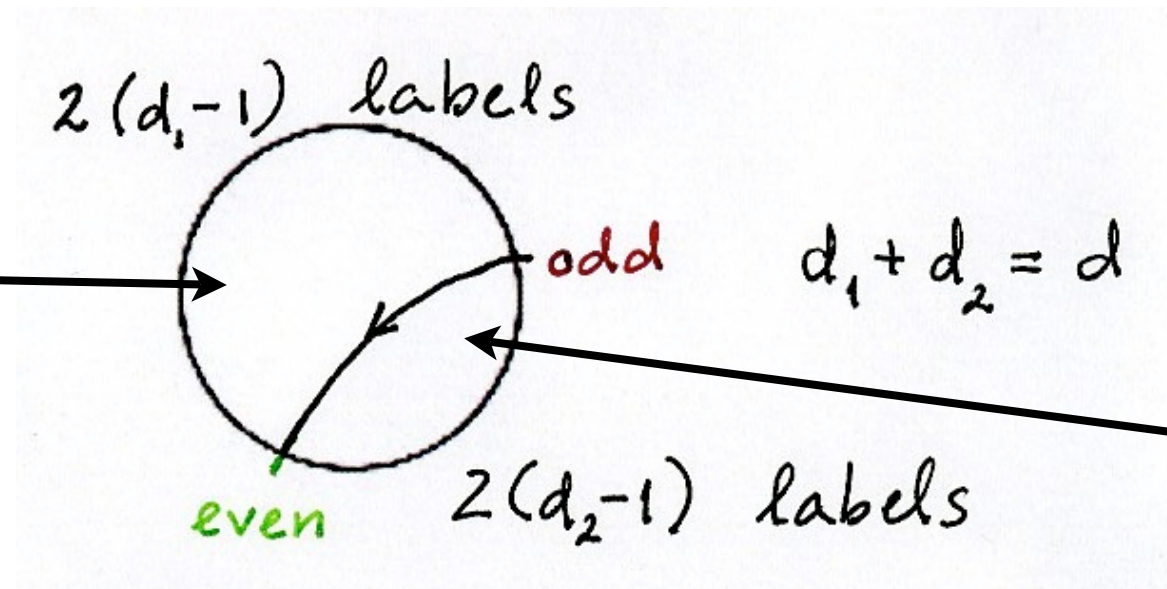 2(d₁-1) labels
odd
d₁ + d₂ = d
even
2(d₂-1) labels